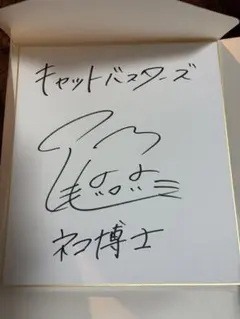 キャットバスターズ
ネコ博士